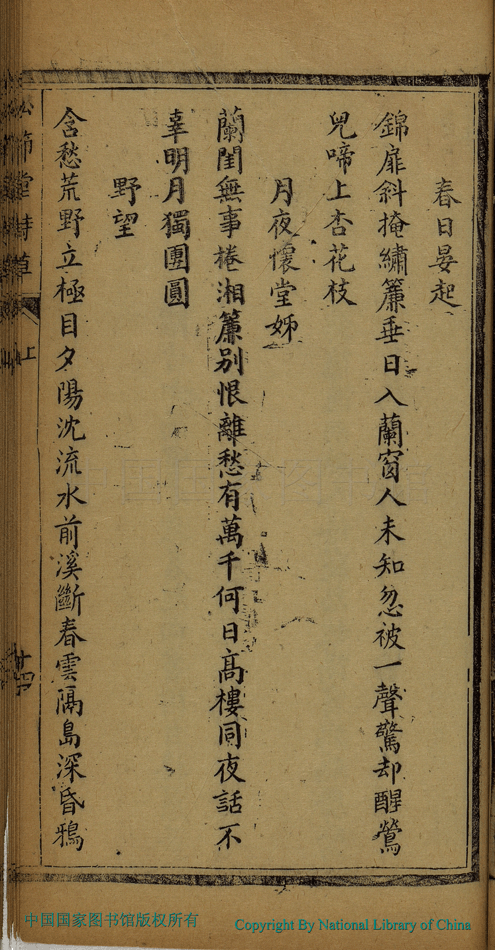 春日晏起
錦扉斜掩繡簾垂日入蘭窗人未知忽被一聲驚却醒鶯
兒啼上杏花枝
月夜懷堂姊
蘭閨無事捲湘簾別恨離愁有萬千何日高樓同夜話不
辜明月獨團圓
野望
含愁荒野立極目夕陽沈流水前溪斷春雲隔島深昏鴉
節堂詩草
上
十四
中国国家图书馆版权所有
Copyright By National Library of China